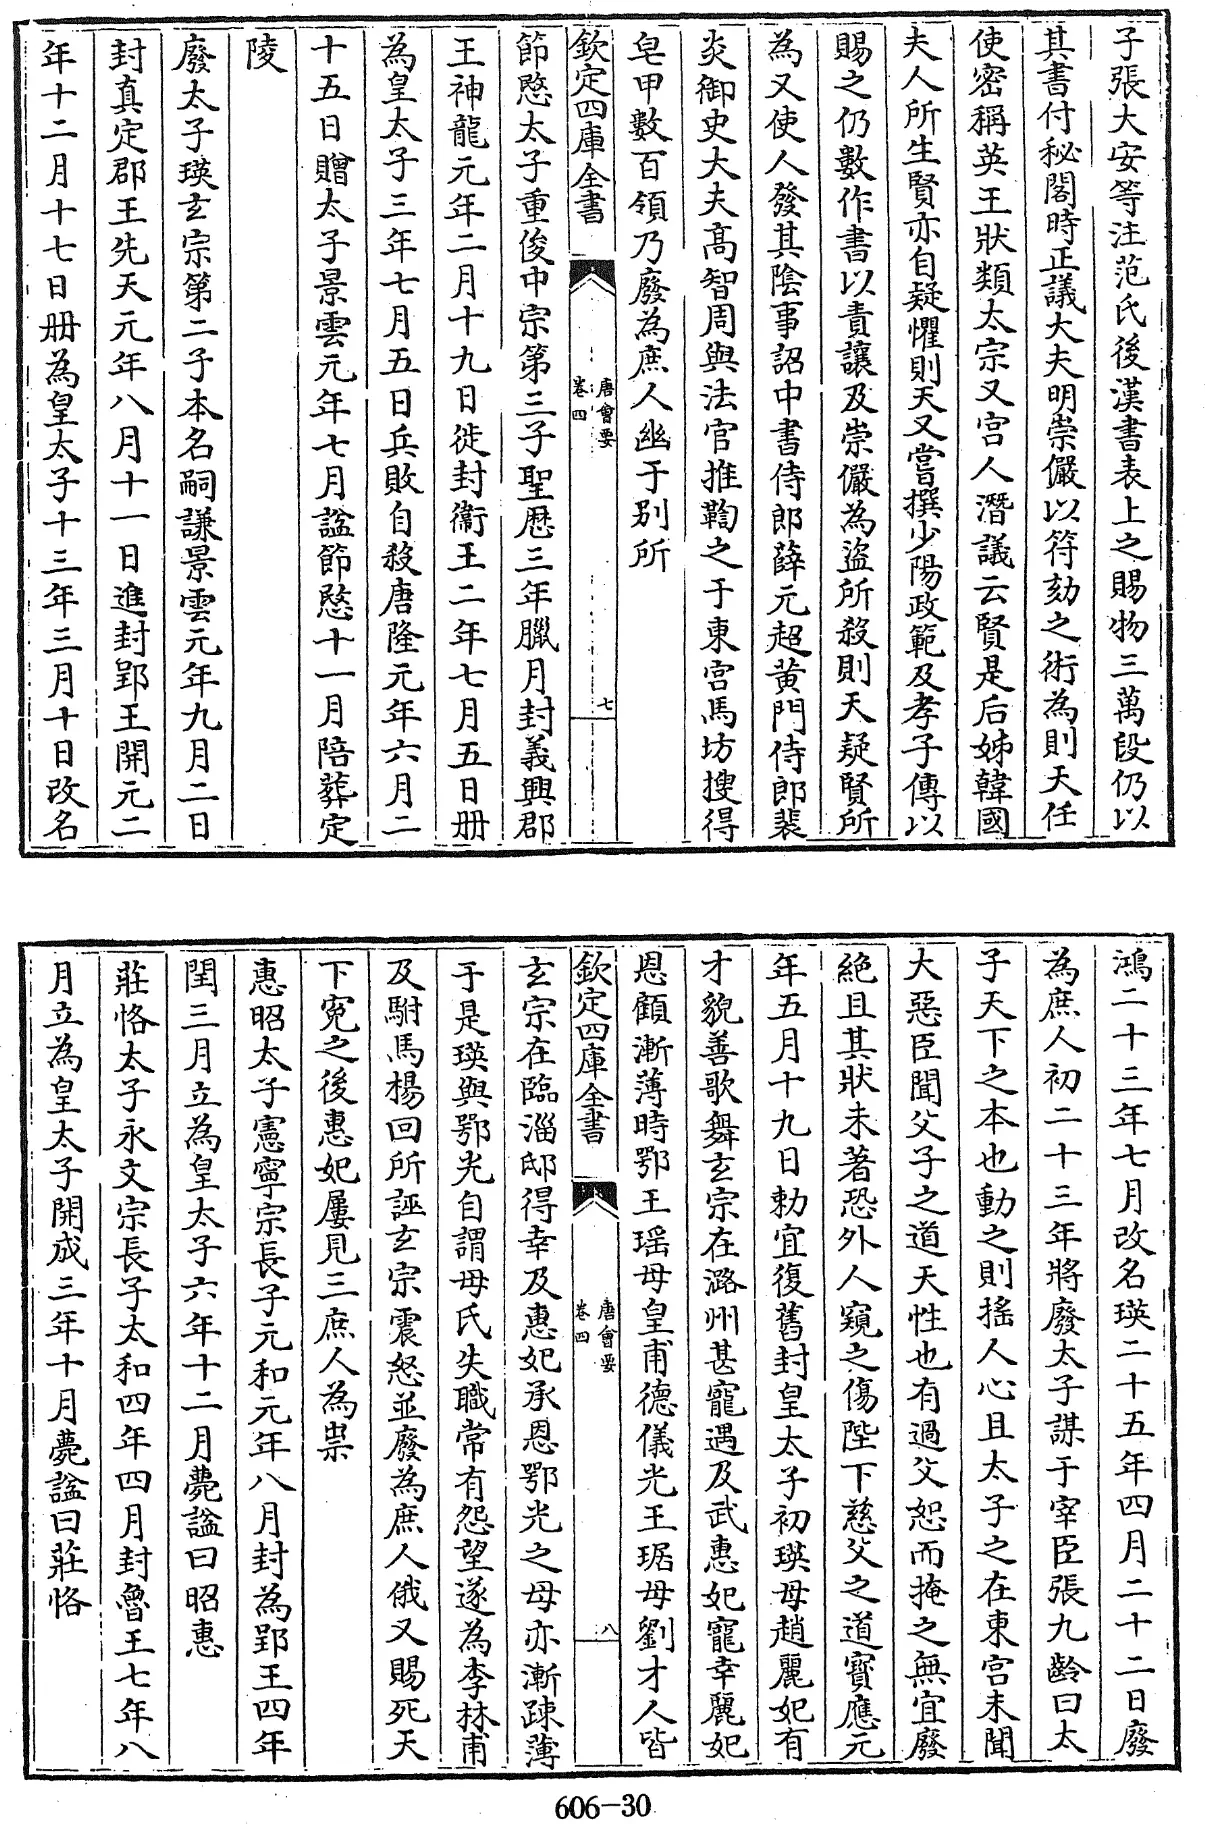 子張大安等注范氏後漢書表上之賜物三萬段仍以
其書付秘閣時正議大夫明崇儼以符劾之術為則天任
使密稱英王狀類太宗又宫人潛議云賢是后姊韓國
夫人所生賢亦自疑懼則天又嘗撰少陽政範及孝子傳以
賜之仍數作書以責讓及崇儼為盜所殺則天疑賢所
為又使人發其陰事詔中書侍郎薛元超黄門侍郎裴
炎御史大夫高智周與法官推鞫之于東宫馬坊搜得
皂甲數百領乃廢為庶人幽于别所
欽定四庫全書
唐會要
卷四
七
節愍太子重俊中宗第三子聖厯三年臘月封義興郡
王神龍元年二月十九日徙封衞王二年七月五日册
為皇太子三年七月五日兵敗自殺唐隆元年六月二
十五日贈太子景雲元年七月諡節愍十一月陪葬定
陵
廢太子瑛玄宗第二子本名嗣謙景雲元年九月二日
封真定郡王先天元年八月十一日進封郢王開元二
年十二月十七日册為皇太子十三年三月十日改名
鴻二十三年七月改名瑛二十五年四月二十二日廢
為庶人初二十三年將廢太子謀于宰臣張九齡曰太
子天下之本也動之則搖人心且太子之在東宫未聞
大惡臣聞父子之道天性也有過父恕而掩之無宜廢
絶且其狀未著恐外人窺之傷陛下慈父之道寳應元
年五月十九日勅宜復舊封皇太子初瑛母趙麗妃有
才貌善歌舞玄宗在潞州甚寵遇及武惠妃寵幸麗妃
恩顧漸薄時鄂王瑶母皇甫德儀光王琚母劉才人皆
欽定四庫全書
唐會要
卷四
八
玄宗在臨淄邸得幸及惠妃承恩鄂光之母亦漸疎薄
于是瑛與鄂光自謂母氏失職常有怨望遂為李林甫
及駙馬楊回所誣玄宗震怒並廢為庶人俄又賜死天
下寃之後惠妃屢見三庶人為祟
惠昭太子憲寧宗長子元和元年八月封為郢王四年
閏三月立為皇太子六年十二月薨諡曰昭惠
莊恪太子永文宗長子太和四年四月封魯王七年八
月立為皇太子開成三年十月薨諡曰莊恪
606-30